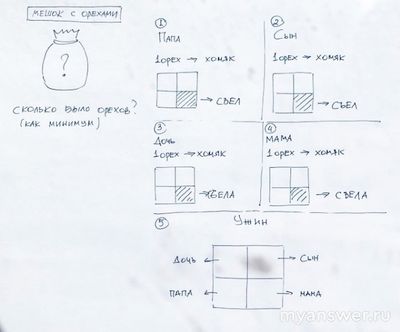 МЕШОК С ОРЕХАМИ
?
СКОЛЬКО БЫЛО ОРЕХОВ?
(КАК МИНИМУМ)
1
ПАПА
1 ОРЕХ → ХОМЯК
→ СЪЕЛ
2
СЫН
1 ОРЕХ → ХОМЯК
→ СЪЕЛ
3
ДОЧЬ
1 ОРЕХ → ХОМЯК
СЪЕЛА
4
МАМА
1 ОРЕХ → ХОМЯК
→ СЪЕЛА
5
УЖИН
ДОЧЬ
СЫН
ПАПА
МАМА
myanswer.ru